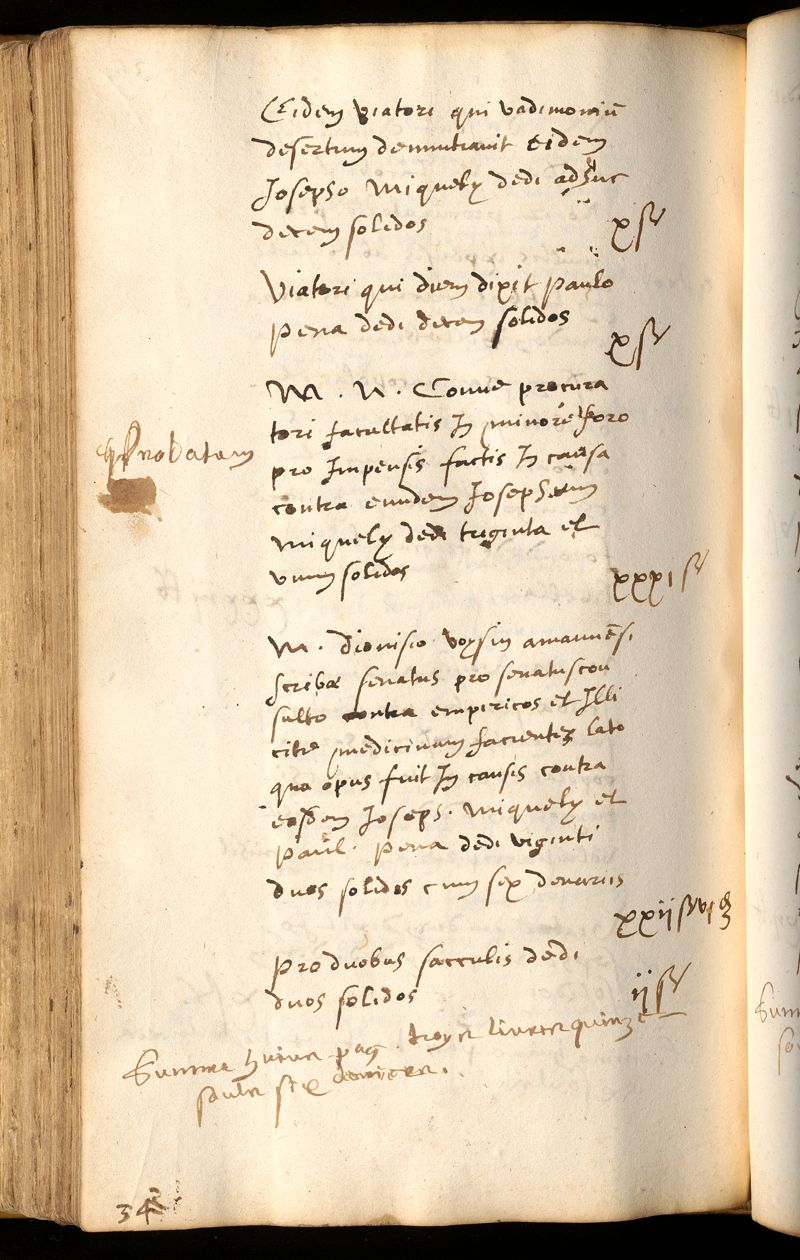 Eidem viatori qui vadimoniū
desertum denuntiavit eidem
Josepho Miquely dedi adhuc
decem solidos
xsʳ
Viatori qui diem dixit Paulo
Pena dedi decem solidos
xsʳ
M. N. Conue procura
tori facultatis In minore foro
pro Impensis factis In causa
probatam
contra eundem Josephum
Miquely dedi triginta et
unum solidos
xxxi sʳ
M. dionisio voysin amanuēsi
scribae senatus pro senatuscon
sulto contra empericos et Illi
cite medicinam facientes lato
quo opus fuit In causis contra
eosdem Joseph. Miquely et
Paul. Pena dedi viginti
duos solidos cum sex denariis
xxii sʳ vi d
Pro duobus sacculis dedi
duos solidos
ii sʳ
Summa huius pag. troys livres quinze
soulz six deniers.
34